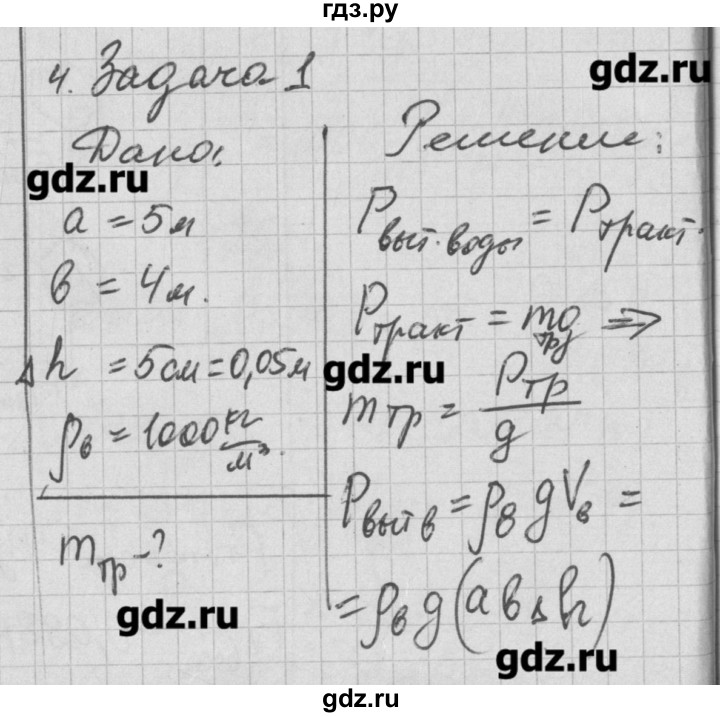 гдз.ру
gdz.ru
4. Задача 1
Дано:
gdz.ru
a = 5 м
в = 4 м.
Δh = 5 см = 0,05 м
ρв = 1000 кг/м³.
mтр - ?
gdz.ru
Решение:
Pвыт. воды = Pтракт.
Pтракт = mтр g ⇒
gdz.ru
mтр = Pтр / g
Pвыт в = ρв g Vв =
= ρв g (a в Δh)
gdz.ru
gdz.ru